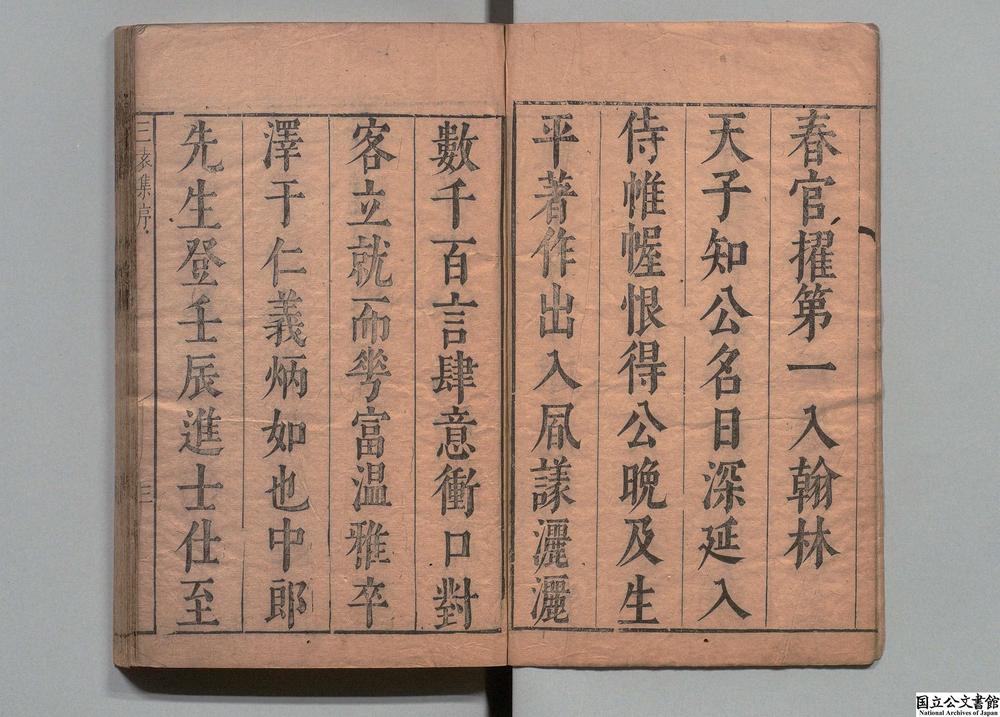 春官擢第一入翰林
天子知公名日深延入
侍帷幄恨得公晚及生
平著作出入風謠灑灑
數千百言肆意衝口對
客立就而華富温雅卒
澤于仁義炳如也中郎
先生登壬辰進士仕至
三袁集序
三
国立公文書館
National Archives of Japan